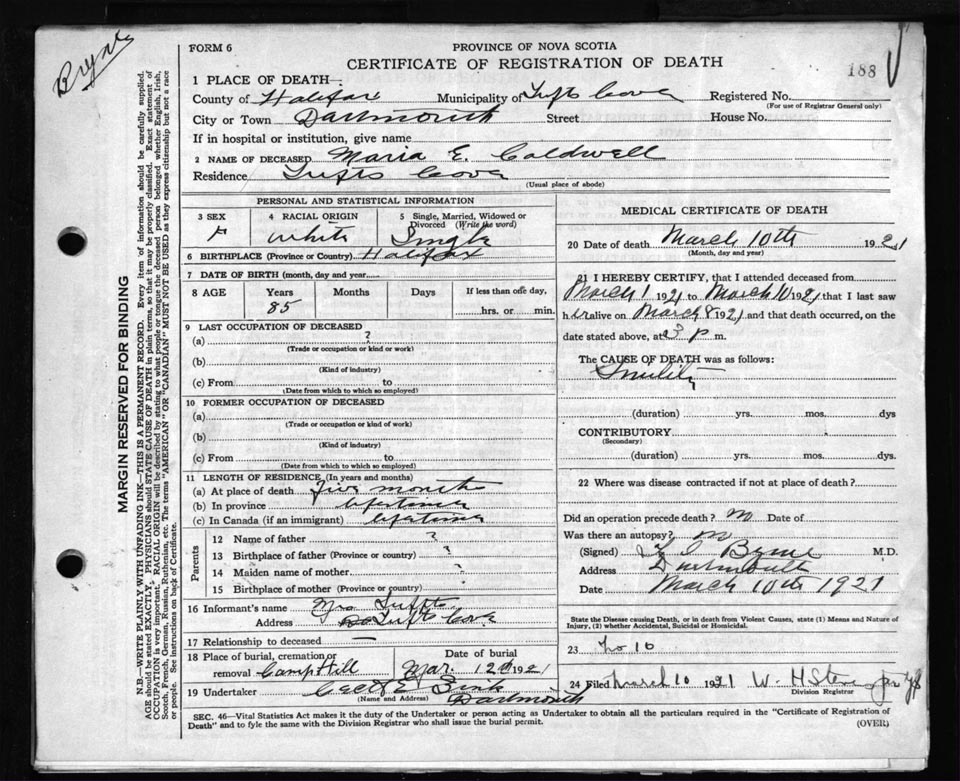 Bryne
FORM 6
PROVINCE OF NOVA SCOTIA
CERTIFICATE OF REGISTRATION OF DEATH
188
1 PLACE OF DEATH—
County of Halifax Municipality of Tufts Cove Registered No.
(For use of Registrar General only)
City or Town Dartmouth Street House No.
If in hospital or institution, give name
2 NAME OF DECEASED Maria E. Caldwell
Residence Tufts Cove
(Usual place of abode)
PERSONAL AND STATISTICAL INFORMATION
3 SEX 4 RACIAL ORIGIN 5 Single, Married, Widowed or Divorced (Write the word)
F White Single
6 BIRTHPLACE (Province or Country) Halifax
7 DATE OF BIRTH (month, day and year)
8 AGE Years Months Days If less than one day,
85 hrs. or min.
9 LAST OCCUPATION OF DECEASED
(a) ?
(Trade or occupation or kind or work)
(b)
(Kind of industry)
(c) From to
(Date from which to which so employed)
10 FORMER OCCUPATION OF DECEASED
(a)
(Trade or occupation or kind of work)
(b)
(Kind of industry)
(c) From to
(Date from which to which so employed)
11 LENGTH OF RESIDENCE (In years and months)
(a) At place of death Five months
(b) In province lifetime
(c) In Canada (if an immigrant) lifetime
Parents
12 Name of father ?
13 Birthplace of father (Province or country) ?
14 Maiden name of mother ?
15 Birthplace of mother (Province or country) ?
16 Informant's name Mrs Tufts
Address Tufts Cove
17 Relationship to deceased —
18 Place of burial, cremation or removal Camp Hill Date of burial Mar. 12th 1921
19 Undertaker
(Name and Address)
Dartmouth
MEDICAL CERTIFICATE OF DEATH
20 Date of death March 10th 1921
(Month, day and year)
21 I HEREBY CERTIFY, that I attended deceased from
March 1 1921 to March 10 1921 that I last saw
her alive on March 8 1921 and that death occurred, on the
date stated above, at 3 p m.
The CAUSE OF DEATH was as follows:
Senility
(duration) yrs. mos. dys
CONTRIBUTORY
(Secondary)
(duration) yrs. mos. dys.
22 Where was disease contracted if not at place of death?
Did an operation precede death? no Date of
Was there an autopsy? no
(Signed) Byrne M.D.
Address Dartmouth
Date March 10th 1921
State the Disease causing Death, or in death from Violent Causes, state (1) Means and Nature of Injury, (2) whether Accidental, Suicidal or Homicidal.
23 No 10
24 Filed March 10 1921 W. H.
Division Registrar
SEC. 46—Vital Statistics Act makes it the duty of the Undertaker or person acting as Undertaker to obtain all the particulars required in the "Certificate of Registration of
Death" and to fyle the same with the Division Registrar who shall issue the burial permit. (OVER)
MARGIN RESERVED FOR BINDING
N.B.—WRITE PLAINLY WITH UNFADING INK—THIS IS A PERMANENT RECORD. Every item of information should be carefully supplied.
AGE should be stated EXACTLY. PHYSICIANS should STATE CAUSE OF DEATH in plain terms, so that it may be properly classified. Exact statement of
OCCUPATION is very important. RACIAL ORIGIN will be described by stating to what people or tongue the deceased person belonged whether English, Irish,
Scotch, French, German, Russian, Ruthenian, etc. The terms "AMERICAN" OR "CANADIAN" MUST NOT BE USED as they express citizenship but not a race
or people. See instructions on back of Certificate.